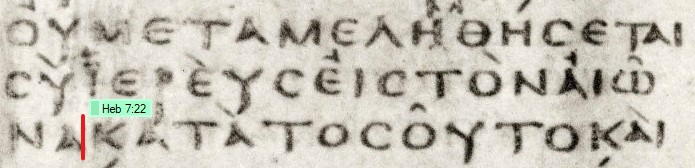 ΟΥΜΕΤΑΜΕΛΗΘΗϹΕΤΑΙ
ϹΥΙΕΡΕΥϹΕΙϹΤΟΝΑΙΩ
Heb 7:22
ΝΑΚΑΤΑΤΟϹΟΥΤΟΚΑΙ